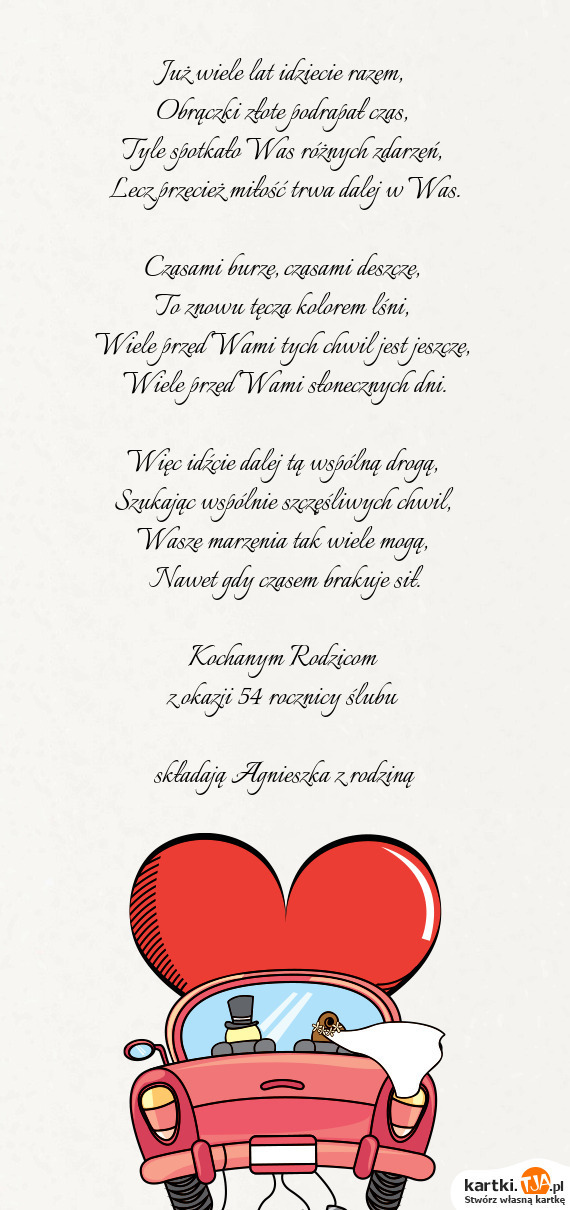 Już wiele lat idziecie razem,
Obrączki złote podrapał czas,
Tyle spotkało Was różnych zdarzeń,
Lecz przecież miłość trwa dalej w Was.
Czasami burze, czasami deszcze,
To znowu tęcza kolorem lśni,
Wiele przed Wami tych chwil jest jeszcze,
Wiele przed Wami słonecznych dni.
Więc idźcie dalej tą wspólną drogą,
Szukając wspólnie szczęśliwych chwil,
Wasze marzenia tak wiele mogą,
Nawet gdy czasem brakuje sił.
Kochanym Rodzicom
z okazji 54 rocznicy ślubu
składają Agnieszka z rodziną
kartki.TJA.pl
Stwórz własną kartkę